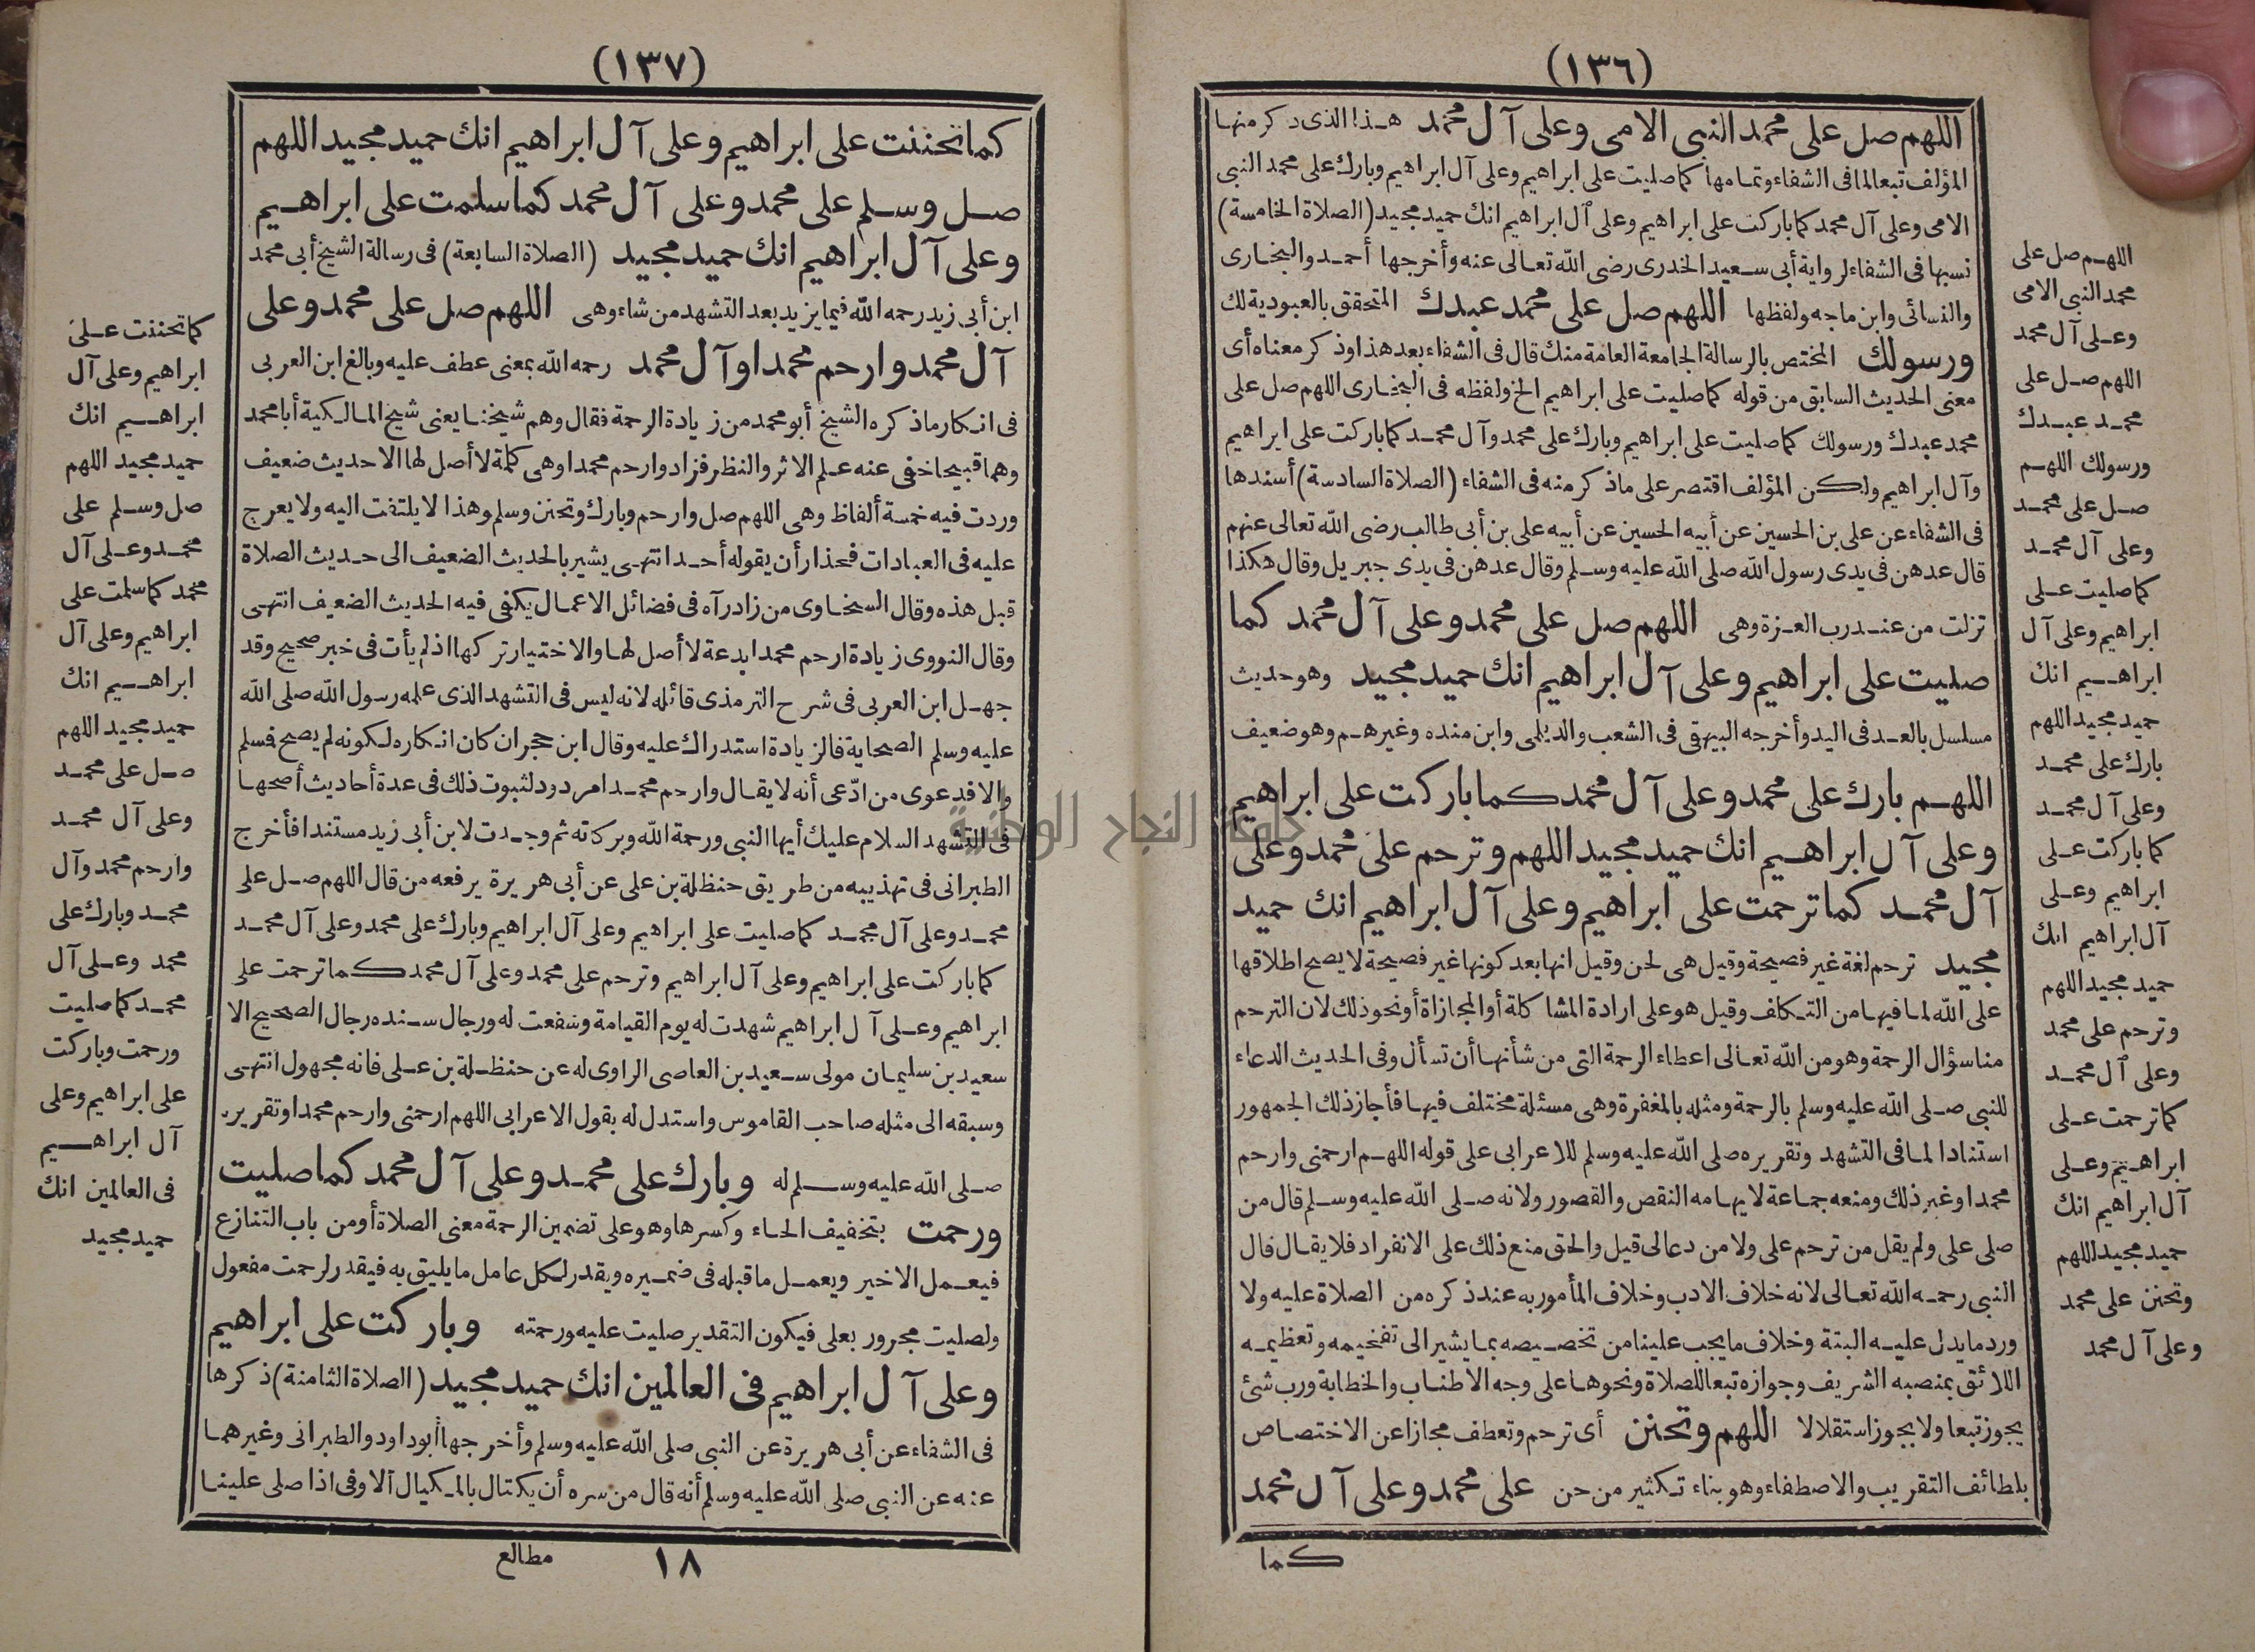 (١٣٦)
اللهم صل على محمد النبى الامى وعلى آل محمد هذا الذى ذكر منها
المؤلف تبعا لما فى الشفاء وتمامها كما صليت على ابراهيم وعلى آل ابراهيم وبارك على محمد النبى
الامى وعلى آل محمد كما باركت على ابراهيم وعلى آل ابراهيم انك حميد مجيد (الصلاة الخامسة)
نسبها فى الشفاء لرواية أبى سعيد الخدرى رضى الله تعالى عنه وأخرجها أحمد والبخارى
والنسائى وابن ماجه ولفظها اللهم صل على محمد عبدك المتحقق بالعبودية لك
ورسولك المختص بالرسالة الجامعة العامة منك قال فى الشفاء بعد هذا وذكر معناه أى
معنى الحديث السابق من قوله كما صليت على ابراهيم الخ ولفظه فى البخارى اللهم صل على
محمد عبدك ورسولك كما صليت على ابراهيم وبارك على محمد وآل محمد كما باركت على ابراهيم
وآل ابراهيم ولكن المؤلف اقتصر على ما ذكر منه فى الشفاء (الصلاة السادسة) أسندها
فى الشفاء عن على بن الحسين عن أبيه الحسين عن أبيه على بن أبى طالب رضى الله تعالى عنهم
قال عدهن فى يدى رسول الله صلى الله عليه وسلم وقال عدهن فى يدى جبريل وقال هكذا
نزلت من عند رب العزة وهى اللهم صل على محمد وعلى آل محمد كما
صليت على ابراهيم وعلى آل ابراهيم انك حميد مجيد وهو حديث
مسلسل بالعد فى اليد وأخرجه البيهقى فى الشعب والديلمى وابن منده وغيرهم وهو ضعيف
اللهم بارك على محمد وعلى آل محمد كما باركت على ابراهيم
وعلى آل ابراهيم انك حميد مجيد اللهم وترحم على محمد وعلى
آل محمد كما ترحمت على ابراهيم وعلى آل ابراهيم انك حميد
مجيد ترحم لغة غير فصيحة وقيل هى لحن وقيل انها بعد كونها غير فصيحة لا يصح اطلاقها
على الله لما فيها من التكلف وقيل هو على ارادة المشاكلة أو المجازاة أو نحو ذلك لان الترحم
منا سؤال الرحمة وهو من الله تعالى اعطاء الرحمة التى من شأنها أن تسأل وفى الحديث الدعاء
للنبى صلى الله عليه وسلم بالرحمة ومثله بالمغفرة وهى مسئلة مختلف فيها فأجاز ذلك الجمهور
استنادا لما فى التشهد وتقريره صلى الله عليه وسلم للاعرابى على قوله اللهم ارحمنى وارحم
محمدا وغير ذلك ومنعه جماعة لايهامه النقص والقصور ولانه صلى الله عليه وسلم قال من
صلى على ولم يقل من ترحم على ولا من دعا لى قيل والحق منع ذلك على الانفراد فلا يقال قال
النبى رحمه الله تعالى لانه خلاف الادب وخلاف المأمور به عند ذكره من الصلاة عليه ولا
ورد ما يدل عليه البتة وخلاف ما يجب علينا من تخصيصه بما يشير الى تفخيمه وتعظيمه
اللائق بمنصبه الشريف وجوازه تبعا للصلاة ونحوها على وجه الاطناب والخطابة ورب شئ
يجوز تبعا ولا يجوز استقلالا اللهم وتحنن أى ترحم وتعطف مجازا عن الاختصاص
بلطائف التقريب والاصطفاء وهو بناء تكثير من حن على محمد وعلى آل محمد
كما
اللهم صل على
محمد النبى الامى
وعلى آل محمد
اللهم صل على
محمد عبدك
ورسولك اللهم
صل على محمد
وعلى آل محمد
كما صليت على
ابراهيم وعلى آل
ابراهيم انك
حميد مجيد اللهم
بارك على محمد
وعلى آل محمد
كما باركت على
ابراهيم وعلى
آل ابراهيم انك
حميد مجيد اللهم
وترحم على محمد
وعلى آل محمد
كما ترحمت على
ابراهيم وعلى
آل ابراهيم انك
حميد مجيد اللهم
وتحنن على محمد
وعلى آل محمد
(١٣٧)
كما تحننت على ابراهيم وعلى آل ابراهيم انك حميد مجيد اللهم
صل وسلم على محمد وعلى آل محمد كما سلمت على ابراهيم
وعلى آل ابراهيم انك حميد مجيد (الصلاة السابعة) فى رسالة الشيخ أبى محمد
ابن أبى زيد رحمه الله فيما يزيد بعد التشهد من شاء وهى اللهم صل على محمد وعلى
آل محمد وارحم محمدا وآل محمد رحمه الله بمعنى عطف عليه وبالغ ابن العربى
فى انكار ما ذكره الشيخ أبو محمد من زيادة الرحمة فقال وهم شيخنا يعنى شيخ المالكية أبا محمد
وهما قبيحا خفى عنه علم الاثر والنظر فزاد وارحم محمدا وهى كلمة لا أصل لها الا حديث ضعيف
وردت فيه خمسة ألفاظ وهى اللهم صل وارحم وبارك وتحنن وسلم وهذا لا يلتفت اليه ولا يعرج
عليه فى العبادات فحذار أن يقوله أحد انتهى يشير بالحديث الضعيف الى حديث الصلاة
قبل هذه وقال السخاوى من زاد رآه فى فضائل الاعمال يكفى فيه الحديث الضعيف انتهى
وقال النووى زيادة ارحم محمدا بدعة لا أصل لها والاختيار تركها اذ لم يأت فى خبر صحيح وقد
جهل ابن العربى فى شرح الترمذى قائله لانه ليس فى التشهد الذى علمه رسول الله صلى الله
عليه وسلم الصحابة فالزيادة استدراك عليه وقال ابن حجر ان كان انكاره لكونه لم يصح فسلم
والا فدعوى من ادّعى أنه لا يقال وارحم محمدا مردود لثبوت ذلك فى عدة أحاديث أصحها
فى التشهد السلام عليك أيها النبى ورحمة الله وبركاته ثم وجدت لابن أبى زيد مستندا فأخرج
الطبرانى فى تهذيبه من طريق حنظلة بن على عن أبى هريرة يرفعه من قال اللهم صل على
محمد وعلى آل محمد كما صليت على ابراهيم وعلى آل ابراهيم وبارك على محمد وعلى آل محمد
كما باركت على ابراهيم وعلى آل ابراهيم وترحم على محمد وعلى آل محمد كما ترحمت على
ابراهيم وعلى آل ابراهيم شهدت له يوم القيامة وشفعت له ورجال سنده رجال الصحيح الا
سعيد بن سليمان مولى سعيد بن العاصى الراوى له عن حنظلة بن على فانه مجهول انتهى
وسبقه الى مثله صاحب القاموس واستدل له بقول الاعرابى اللهم ارحمنى وارحم محمدا وتقريره
صلى الله عليه وسلم له وبارك على محمد وعلى آل محمد كما صليت
ورحمت بتخفيف الحاء وكسرها وهو على تضمين الرحمة معنى الصلاة أو من باب التنازع
فيعمل الاخير ويعمل ما قبله فى ضميره ويقدر لكل عامل ما يليق به فيقدر لرحمت مفعول
ولصليت مجرور بعلى فيكون التقدير صليت عليه ورحمته وباركت على ابراهيم
وعلى آل ابراهيم فى العالمين انك حميد مجيد (الصلاة الثامنة) ذكرها
فى الشفاء عن أبى هريرة عن النبى صلى الله عليه وسلم وأخرجها أبو داود والطبرانى وغيرهما
عنه عن النبى صلى الله عليه وسلم أنه قال من سره أن يكتال بالمكيال الاوفى اذا صلى علينا
١٨ مطالع
كما تحننت على
ابراهيم وعلى آل
ابراهيم انك
حميد مجيد اللهم
صل وسلم على
محمد وعلى آل
محمد كما سلمت على
ابراهيم وعلى آل
ابراهيم انك
حميد مجيد اللهم
صل على محمد
وعلى آل محمد
وارحم محمد وآل
محمد وبارك على
محمد وعلى آل
محمد كما صليت
ورحمت وباركت
على ابراهيم وعلى
آل ابراهيم
فى العالمين انك
حميد مجيد
جامعة النجاح الوطنية